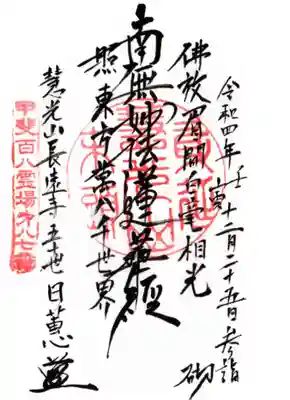 令和四年壬寅十二月二十五日参詣 砌
佛放眉間白毫相光
南無妙法蓮華経
照東方萬八千世界
慧光山長遠寺五十世日蕙
甲斐百八霊場